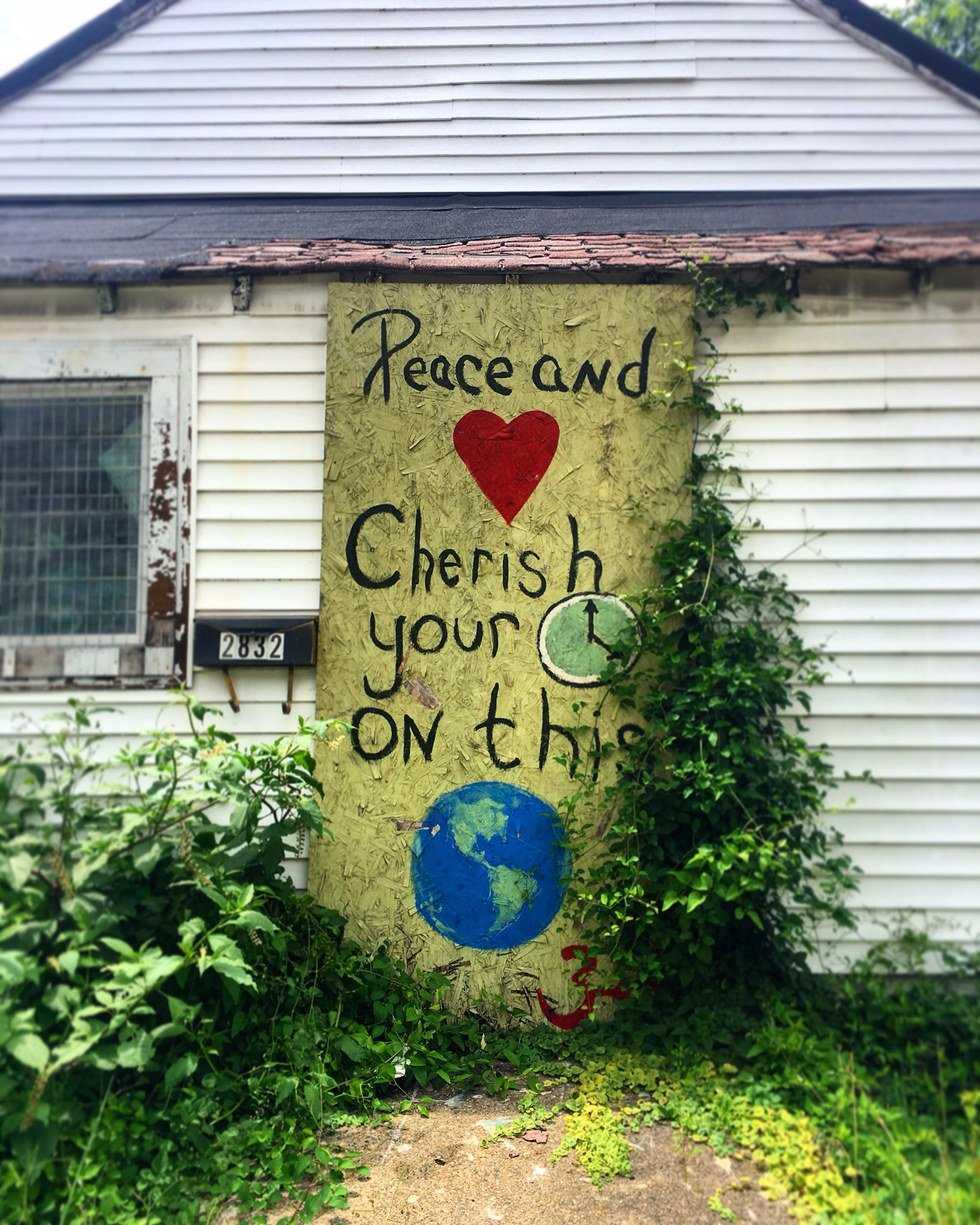 Peace and
Cherish
your
2832
ON this